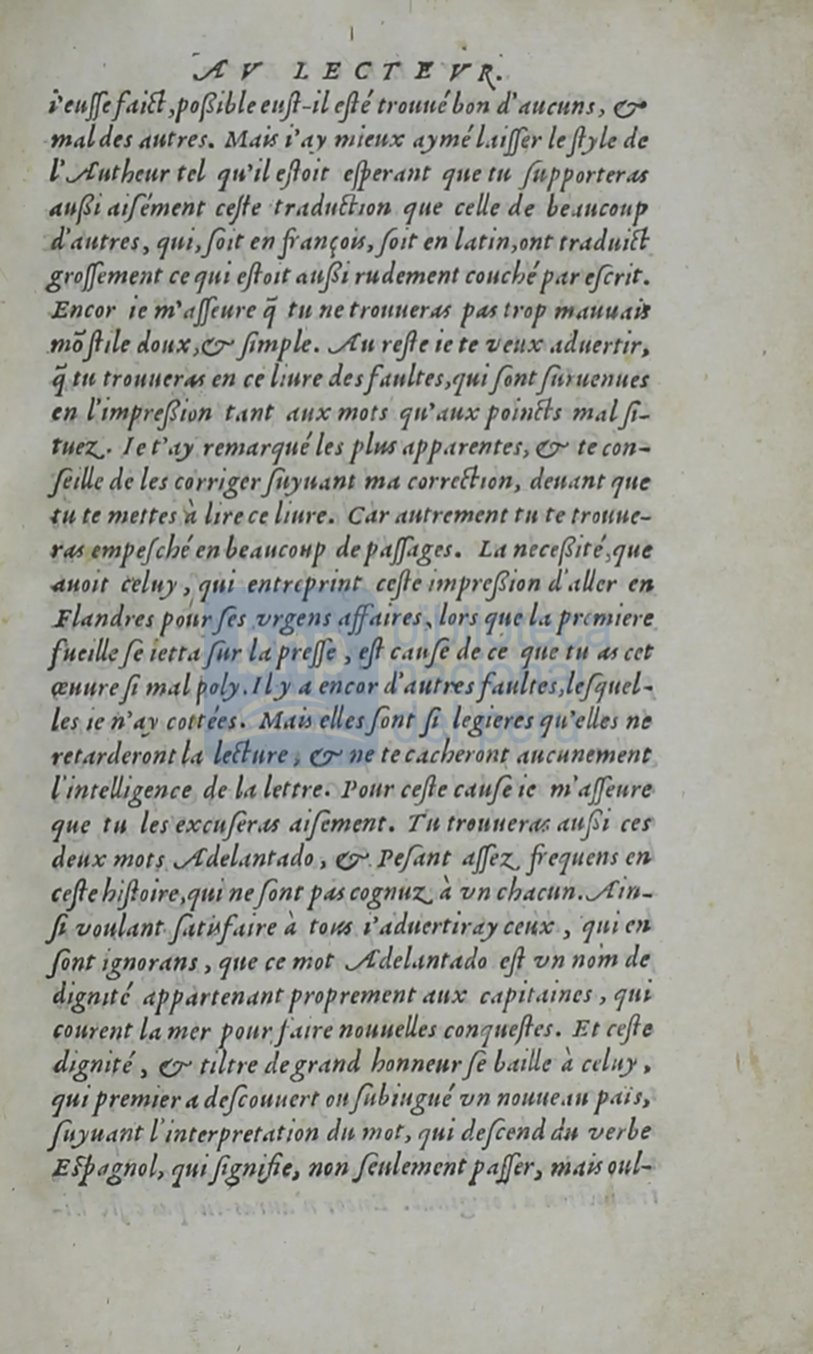 AV LECTEVR.
i'eusse faict, possible eust-il esté trouué bon d'aucuns, &
mal des autres. Mais i'ay mieux aymé laisser le style de
l'Autheur tel qu'il estoit esperant que tu supporteras
außi aisément ceste traduction que celle de beaucoup
d'autres, qui, soit en françois, soit en latin, ont traduict
grossement ce qui estoit außi rudement couché par escrit.
Encor ie m'asseure q̃ tu ne trouueras pas trop mauuais
mõ stile doux, & simple. Au reste ie te veux aduertir,
q̃ tu trouueras en ce liure des faultes, qui sont suruenues
en l'impreßion tant aux mots qu'aux poincts mal si-
tuez. Ie t'ay remarqué les plus apparentes, & te con-
seille de les corriger suyuant ma correction, deuant que
tu te mettes à lire ce liure. Car autrement tu te trouue-
ras empesché en beaucoup de passages. La neceßité, que
auoit celuy, qui entreprint ceste impreßion d'aller en
Flandres pour ses vrgens affaires, lors que la premiere
fueille se ietta sur la presse, est cause de ce que tu as cet
œuure si mal poly. Il y a encor d'autres faultes, lesquel-
les ie n'ay cottées. Mais elles sont si legieres qu'elles ne
retarderont la lecture, & ne te cacheront aucunement
l'intelligence de la lettre. Pour ceste cause ie m'asseure
que tu les excuseras aisement. Tu trouueras außi ces
deux mots Adelantado, & Pesant assez frequens en
ceste histoire, qui ne sont pas cognuz à vn chacun. Ain-
si voulant satisfaire à tous i'aduertiray ceux, qui en
sont ignorans, que ce mot Adelantado est vn nom de
dignité appartenant proprement aux capitaines, qui
courent la mer pour faire nouuelles conquestes. Et ceste
dignité, & tiltre de grand honneur se baille à celuy,
qui premier a descouuert ou subiugué vn nouueau païs,
suyuant l'interpretation du mot, qui descend du verbe
Espagnol, qui signifie, non seulement passer, mais oul-